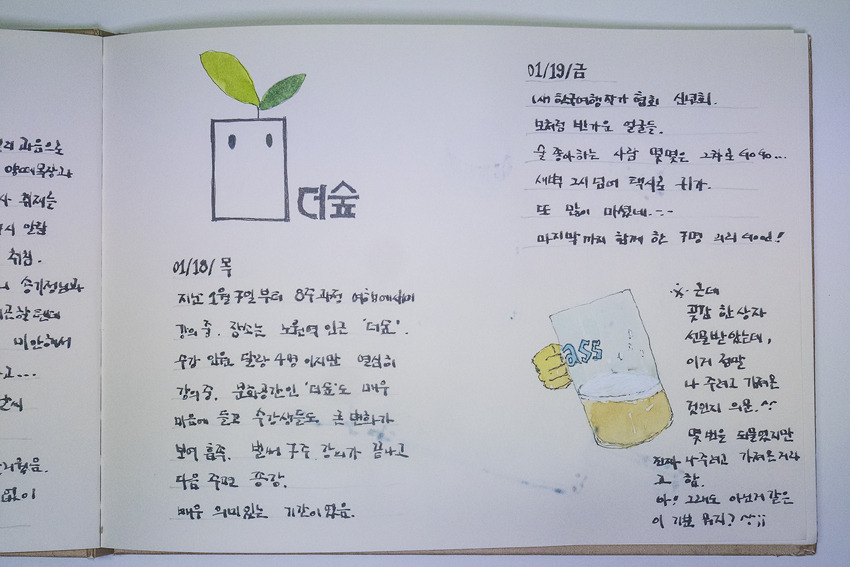 과음으로
취재를
취침.
미안해서
없이
더숲
01/18/ 목
지난 1월 7일부터 8주 과정 여행에세이
강의 중. 장소는 노원역 인근 '더숲'.
수강 인원 달랑 4명 이지만 열심히
강의 중. 문화공간인 '더숲'도 매우
마음에 들고 수강생들도 큰 변화가
보여 흡족. 벌써 7주 강의가 끝나고
다음 주면 종강.
매우 의미있는 기간이었음.
01/19/금
한국여행작가 협회 신년회.
모처럼 반가운 얼굴들.
술 좋아하는 사람 몇몇은 2차로 GOGO...
새벽 2시 넘어 택시로 귀가.
또 많이 마셨네.-.-
마지막까지 함께 한 7명
ass
※ 근데
곶감 한 상자
선물받았는데,
이거 정말
나 주려고 가져온
것인지 의문.^^
몇 번을 되물었지만
진짜 나 주려고 가져온 거라
고 함.
아! 그래도 아닌거 같은
이 기분 뭐지? ^^;;